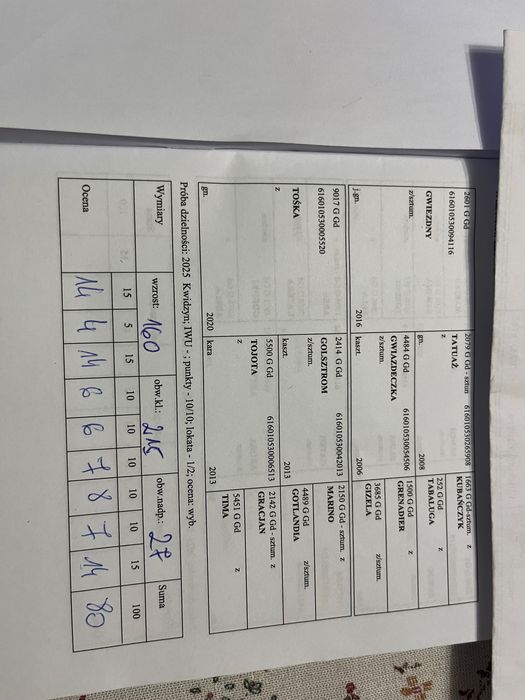 2601 G Gd
616010530094116
GWIEZDNY
z/sztum.
j.gn. 2016
2079 G Gd - sztun 616010530265908
TATUAŻ
z
gn. 2008
4484 G Gd 616010530054506
GWIAZDECZKA
z/sztum.
kaszt. 2006
1663 G Gd-sztum. z
KUBAŃCZYK
252 G Gd z
TABALUGA
1500 G Gd z
GRENADIER
3685 G Gd z/sztum.
GIZELA
9017 G Gd
616010530005520
TOŚKA
z
gn. 2020
2414 G Gd 616010530042013
GOLSZTROM
z/sztum.
kaszt. 2013
5500 G Gd 616010530006513
TOJOTA
z
kara 2013
2150 G Gd - sztum. z
MARINO
4489 G Gd z/sztum.
GOTLANDIA
2142 G Gd - sztum. z
GRACJAN
5451 G Gd z
TIMA
Próba dzielności: 2025 Kwidzyn; IWU - ; punkty - 10/10; lokata - 1/2; ocena: wyb.
Wymiary wzrost: 160 obw.kl.: 215 obw.nadp.: 27 Suma
15 5 15 10 10 10 10 10 15 100
Ocena 14 4 14 6 6 7 8 7 14 80